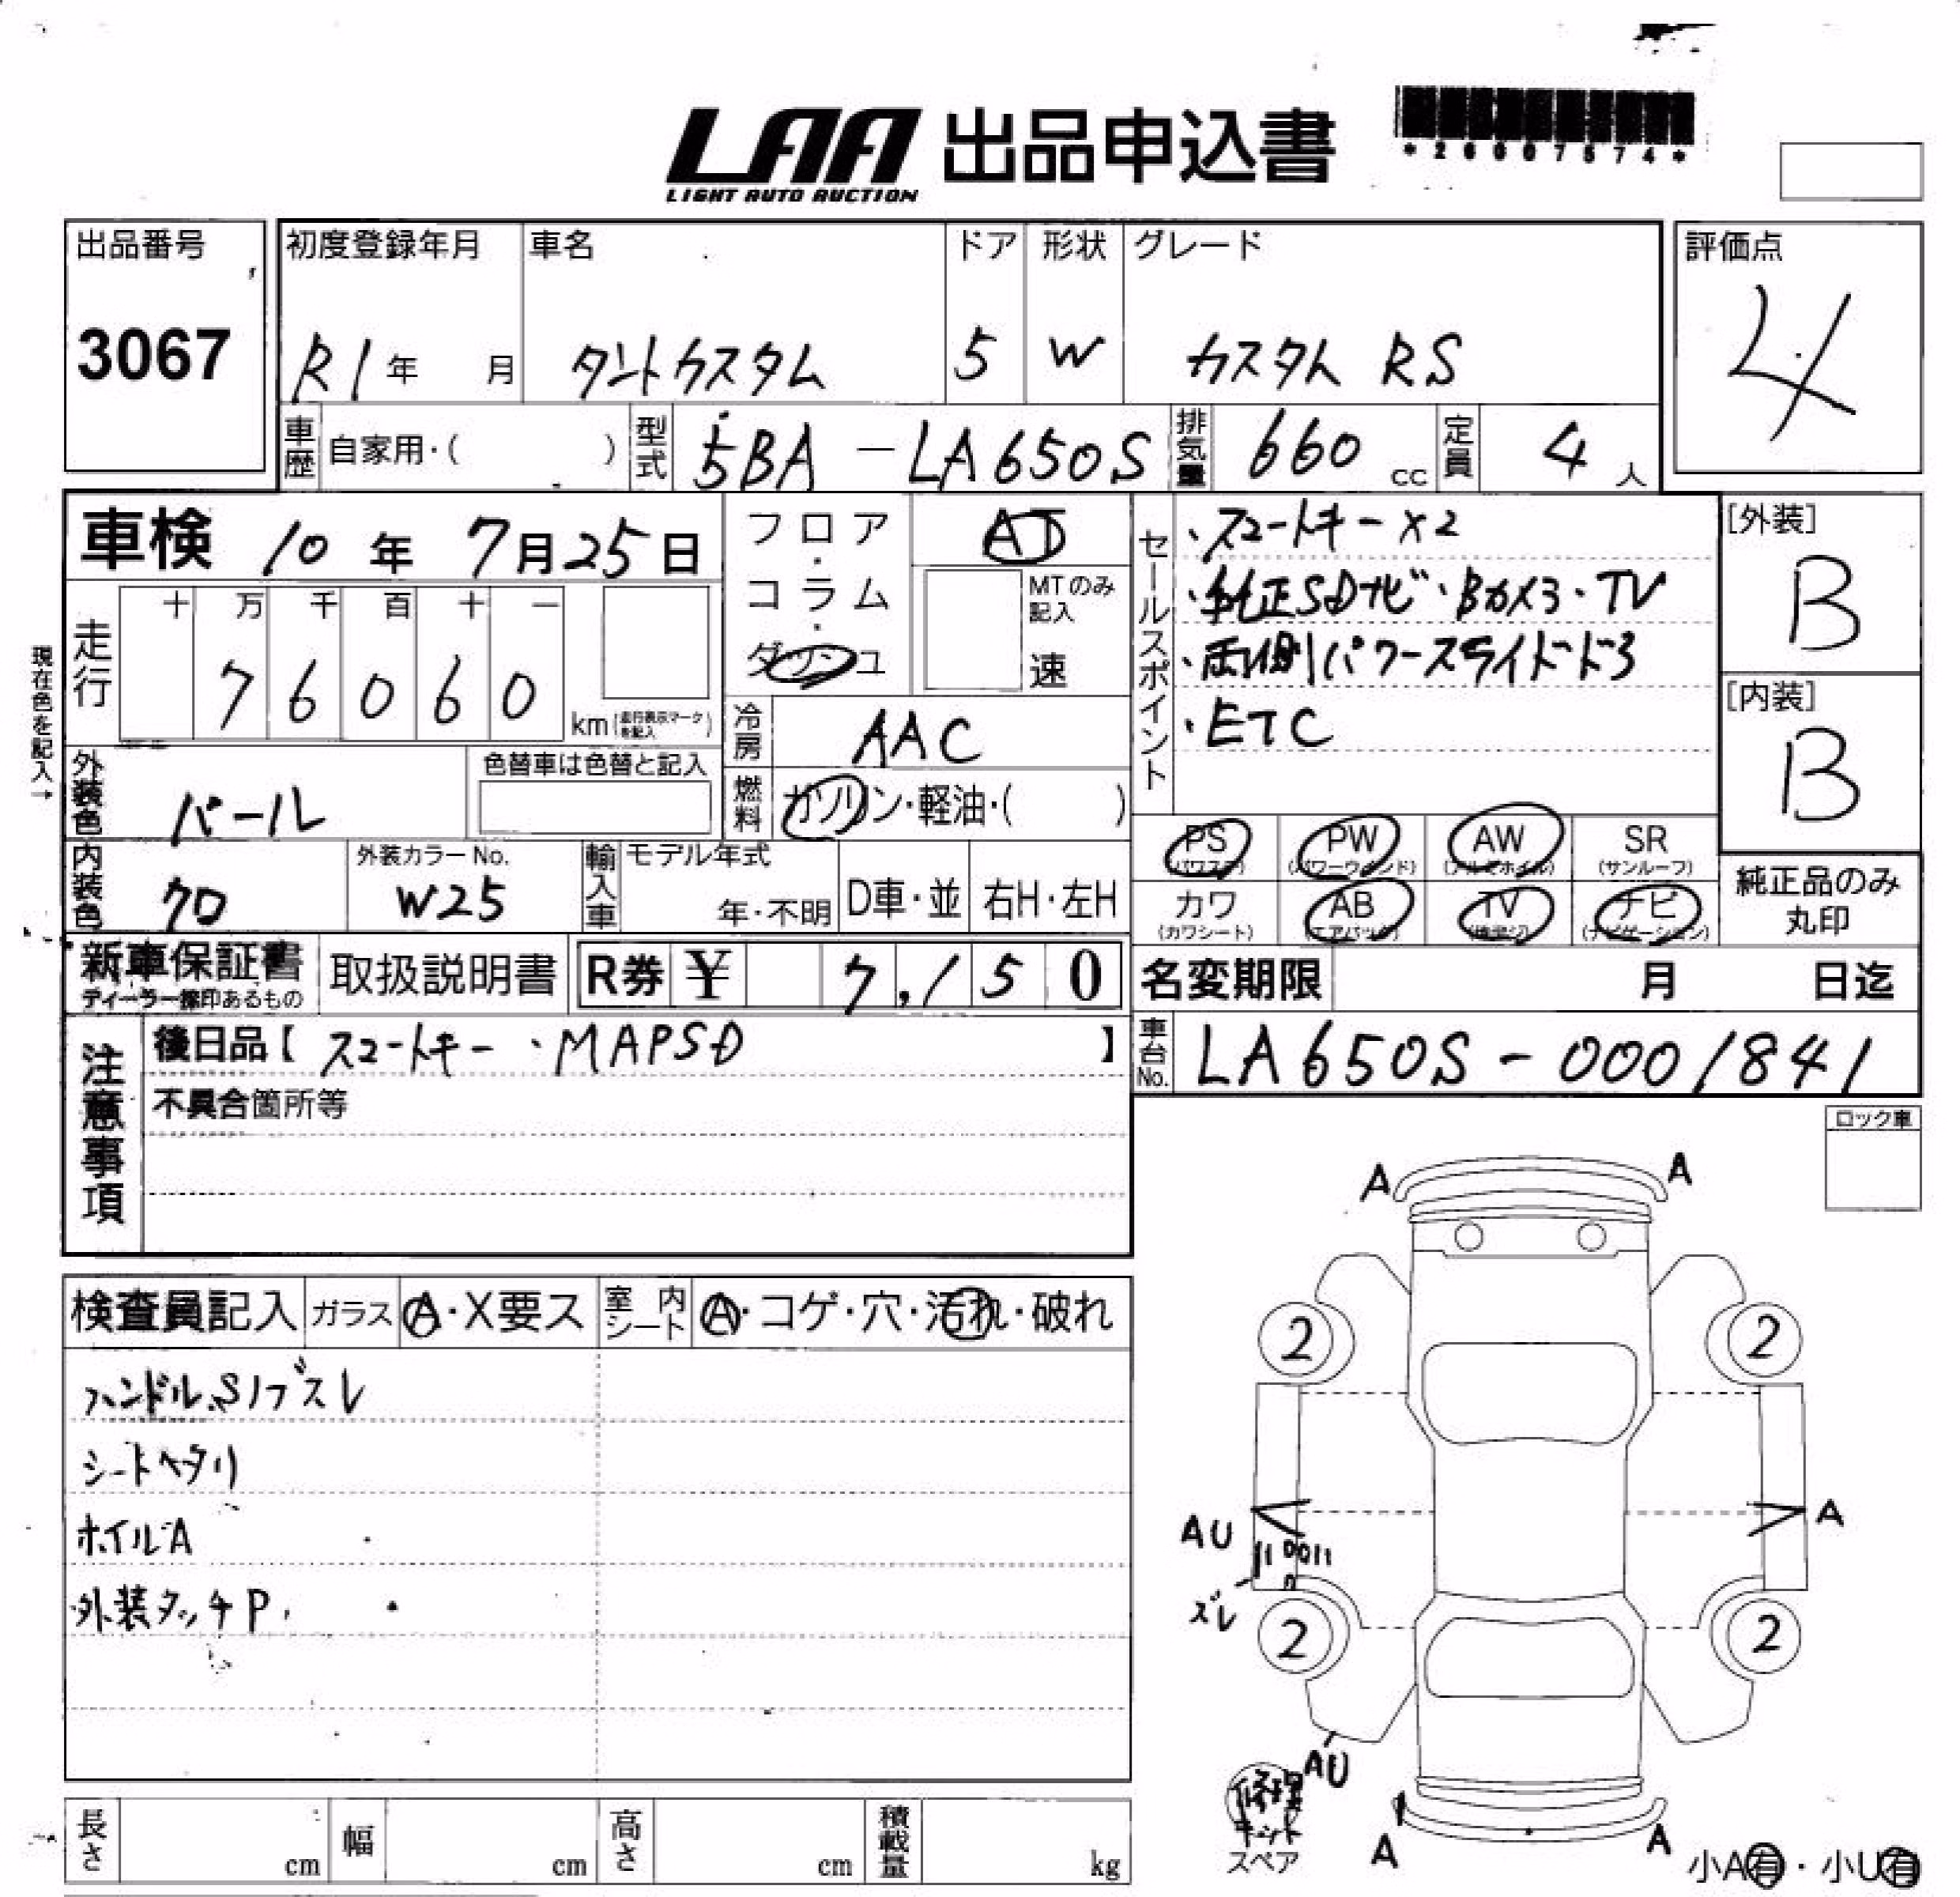 LAA 出品申込書
LIGHT AUTO AUCTION
*26007574*
出品番号
3067
初度登録年月
R1年 月
車名
タントカスタム
ドア
5
形状
W
グレード
カスタム RS
評価点
4
車歴 自家用・( )
型式 5BA-LA650S
排気量 660 cc
定員 4人
車検 10年 7月25日
現在色を記入→
走行
十 万 千 百 十 一
7 6 0 6 0
km (走行表示マークを記入)
フロア・コラム・ダッシュ
AT
MTのみ記入
速
冷房 AAC
燃料 ガソリン・軽油・( )
外装色 パール
色替車は色替と記入
内装色 クロ
外装カラーNo.
W25
輸入車
モデル年式
年・不明
D車・並
右H・左H
セールスポイント
・スマートキー×2
・純正SDナビ・Bカメラ・TV
・両側パワースライドドラ
・ETC
[外装]
B
[内装]
B
PS (パワステ)
PW (パワーウインド)
AW (アルミホイル)
SR (サンルーフ)
カワ (カワシート)
AB (エアバック)
TV
ナビ (ナビゲーション)
純正品のみ
丸印
新車保証書
ディーラー捺印あるもの
取扱説明書
R券 ¥ 7,150
名変期限 月 日迄
車台No. LA650S-0001841
注意事項
後日品【 スマートキー・MAPSD 】
不具合箇所等
ロック車
検査員記入
ガラス A・X要ス
室内シート A・コゲ・穴・汚れ・破れ
ハンドル.Sノブスレ
シートヘタリ
ホイルA
外装タッチP.
A A
2 2
AU A
ズレ
2 2
AU
修理
キット
スペア
A A
小A有・小U有
長さ cm
幅 cm
高さ cm
積載量 kg